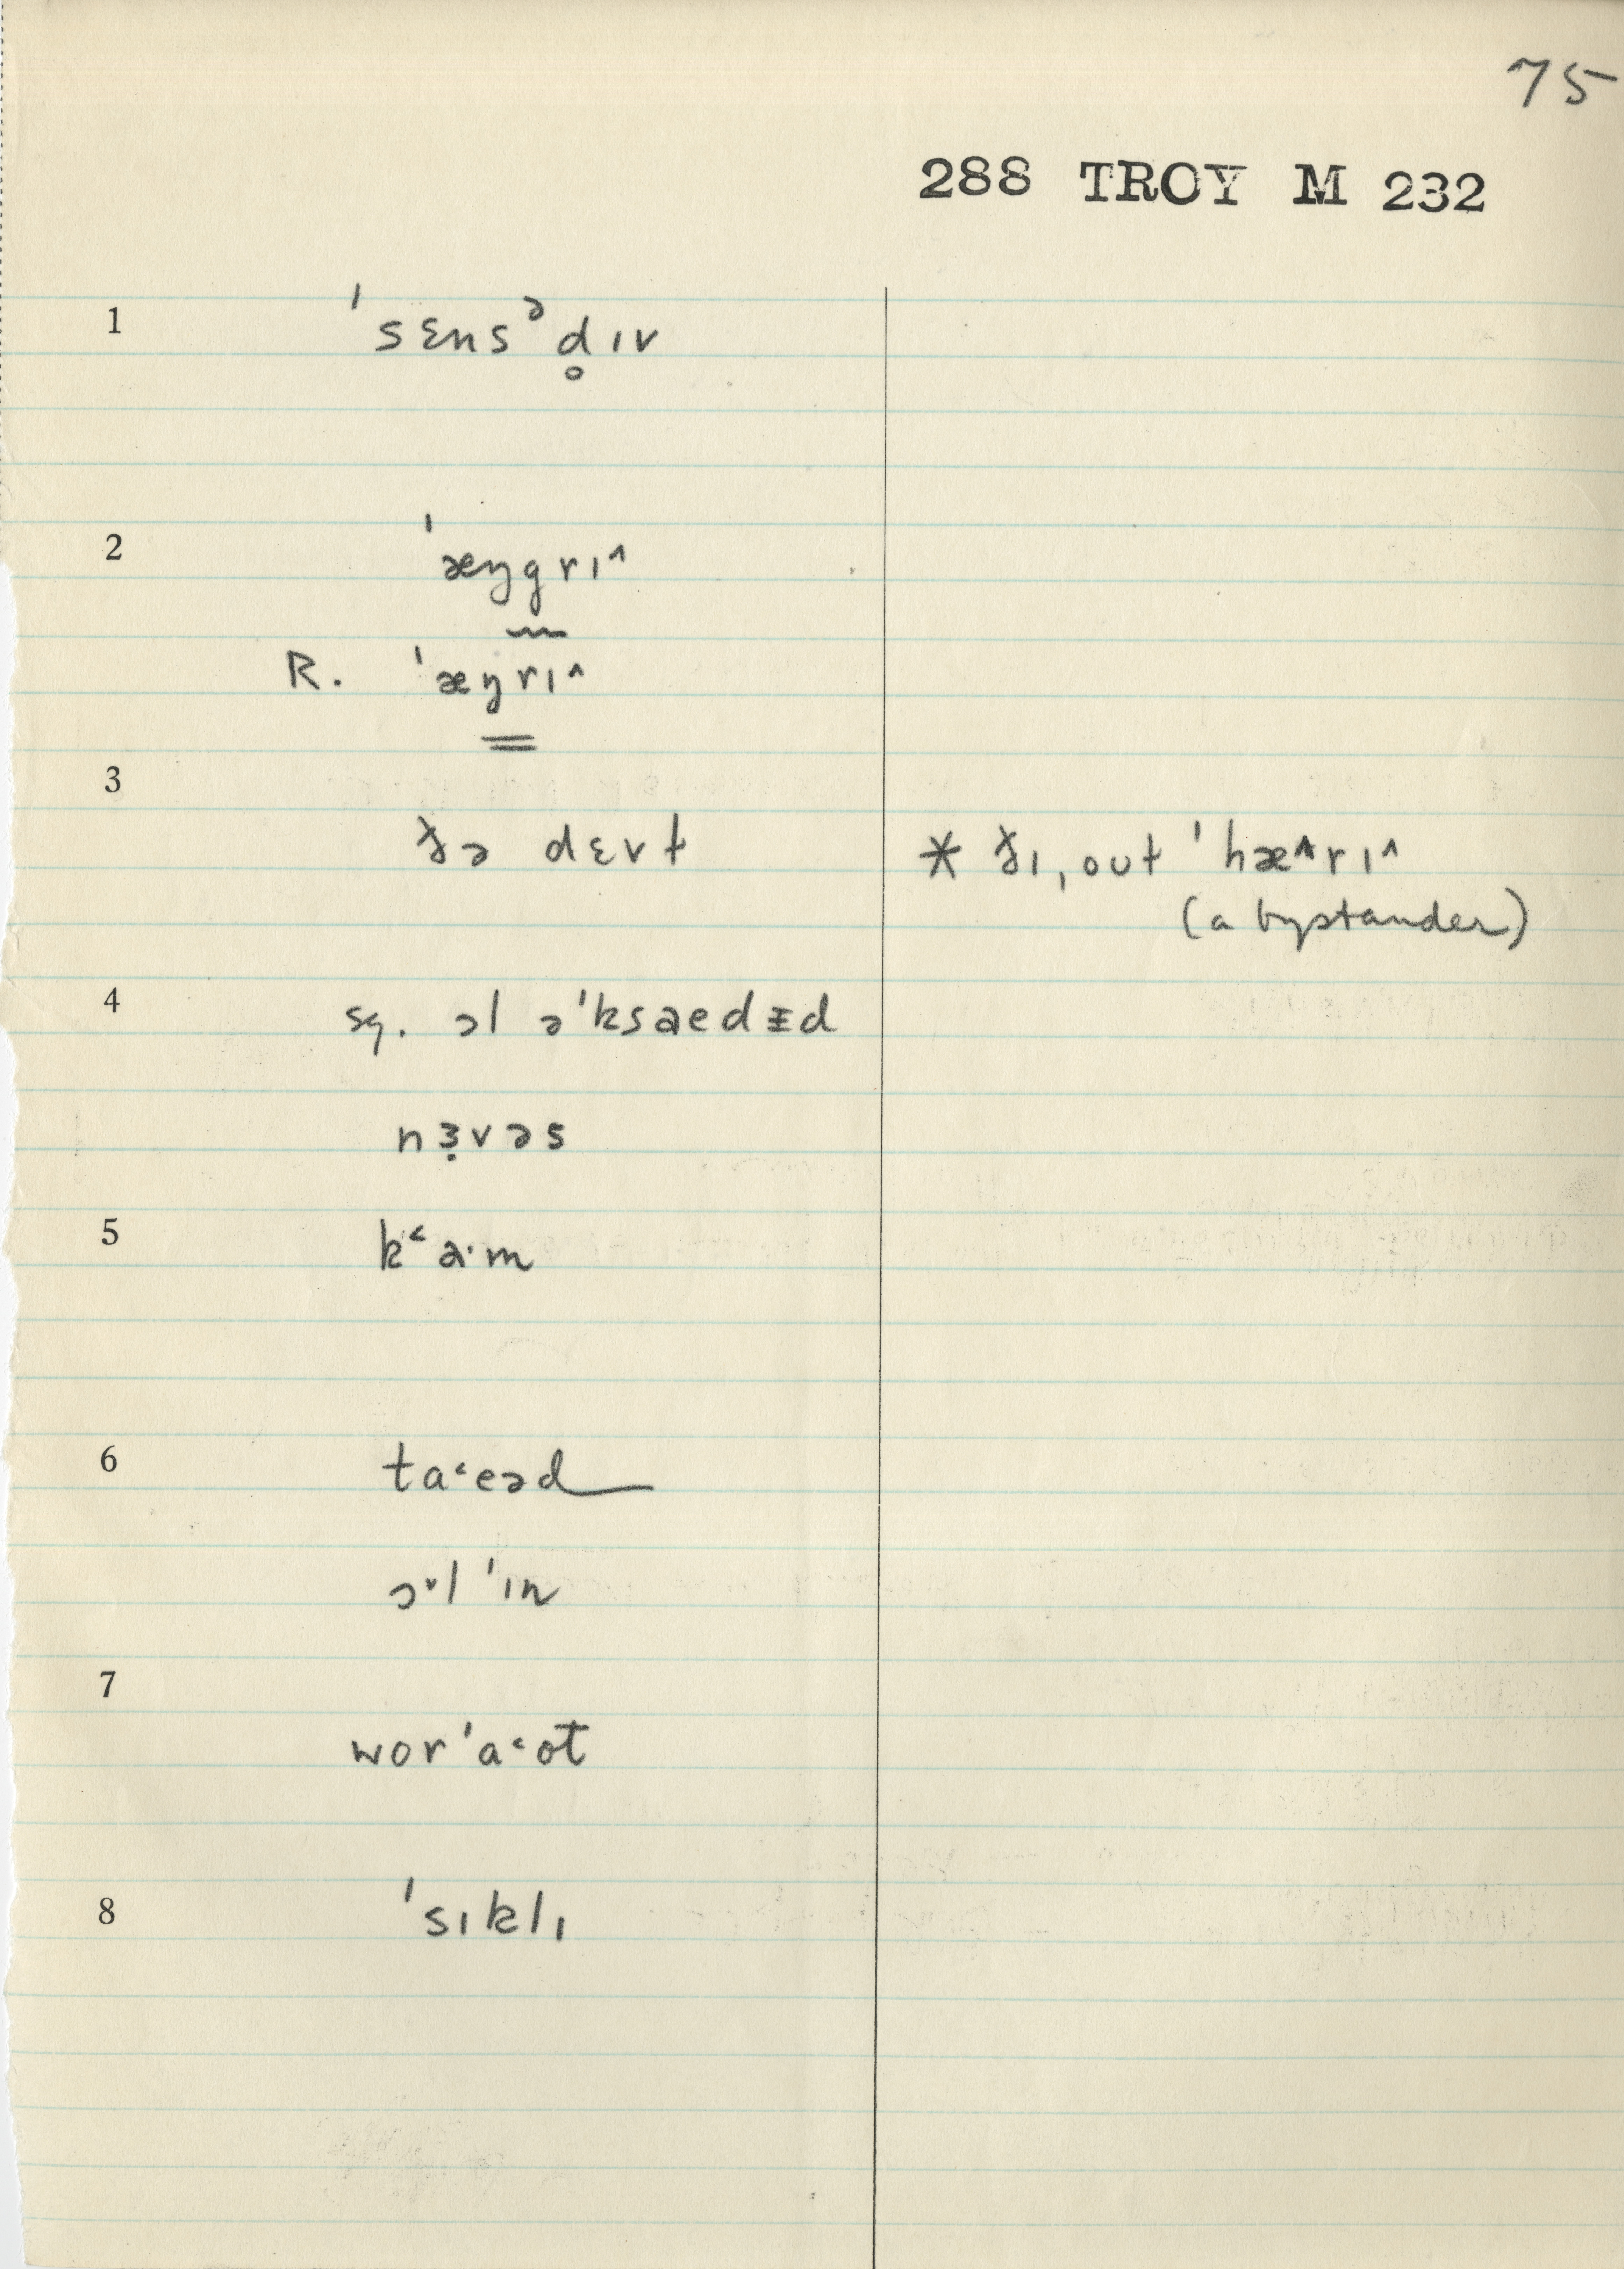 75
288 TROY M 232
1 ˈsɛnsᵊd̥ɪv
2 ˈæŋgrɪ^
R. ˈæŋrɪ^
3
ðə dɛvɫ * ðɪ, oʊt ˈhæ^rɪ^
(a bystander)
4 sq. ɔl əˈksaedɪd
nɜ̣vəs
5 kʻa·m
6 ta˂eəd
ɔ˅l ˈɪn
7
worˈa˂ot
8 ˈsɪklɪ